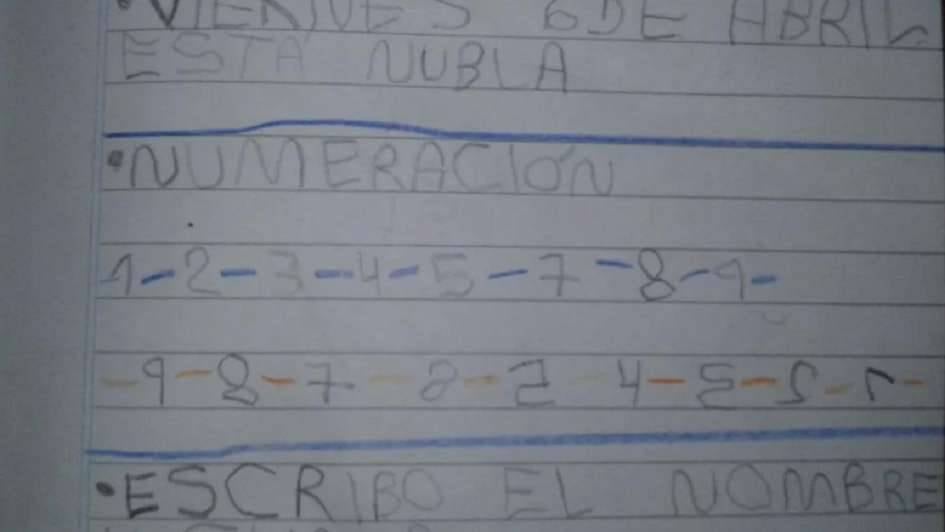 •VIERNES 6 DE ABRIL
ESTA NUBLA
•NUMERACIÓN
1-2-3-4-5-7-8-9-
-9-8-7-6-5-4-3-2-1-
•ESCRIBO EL NOMBRE